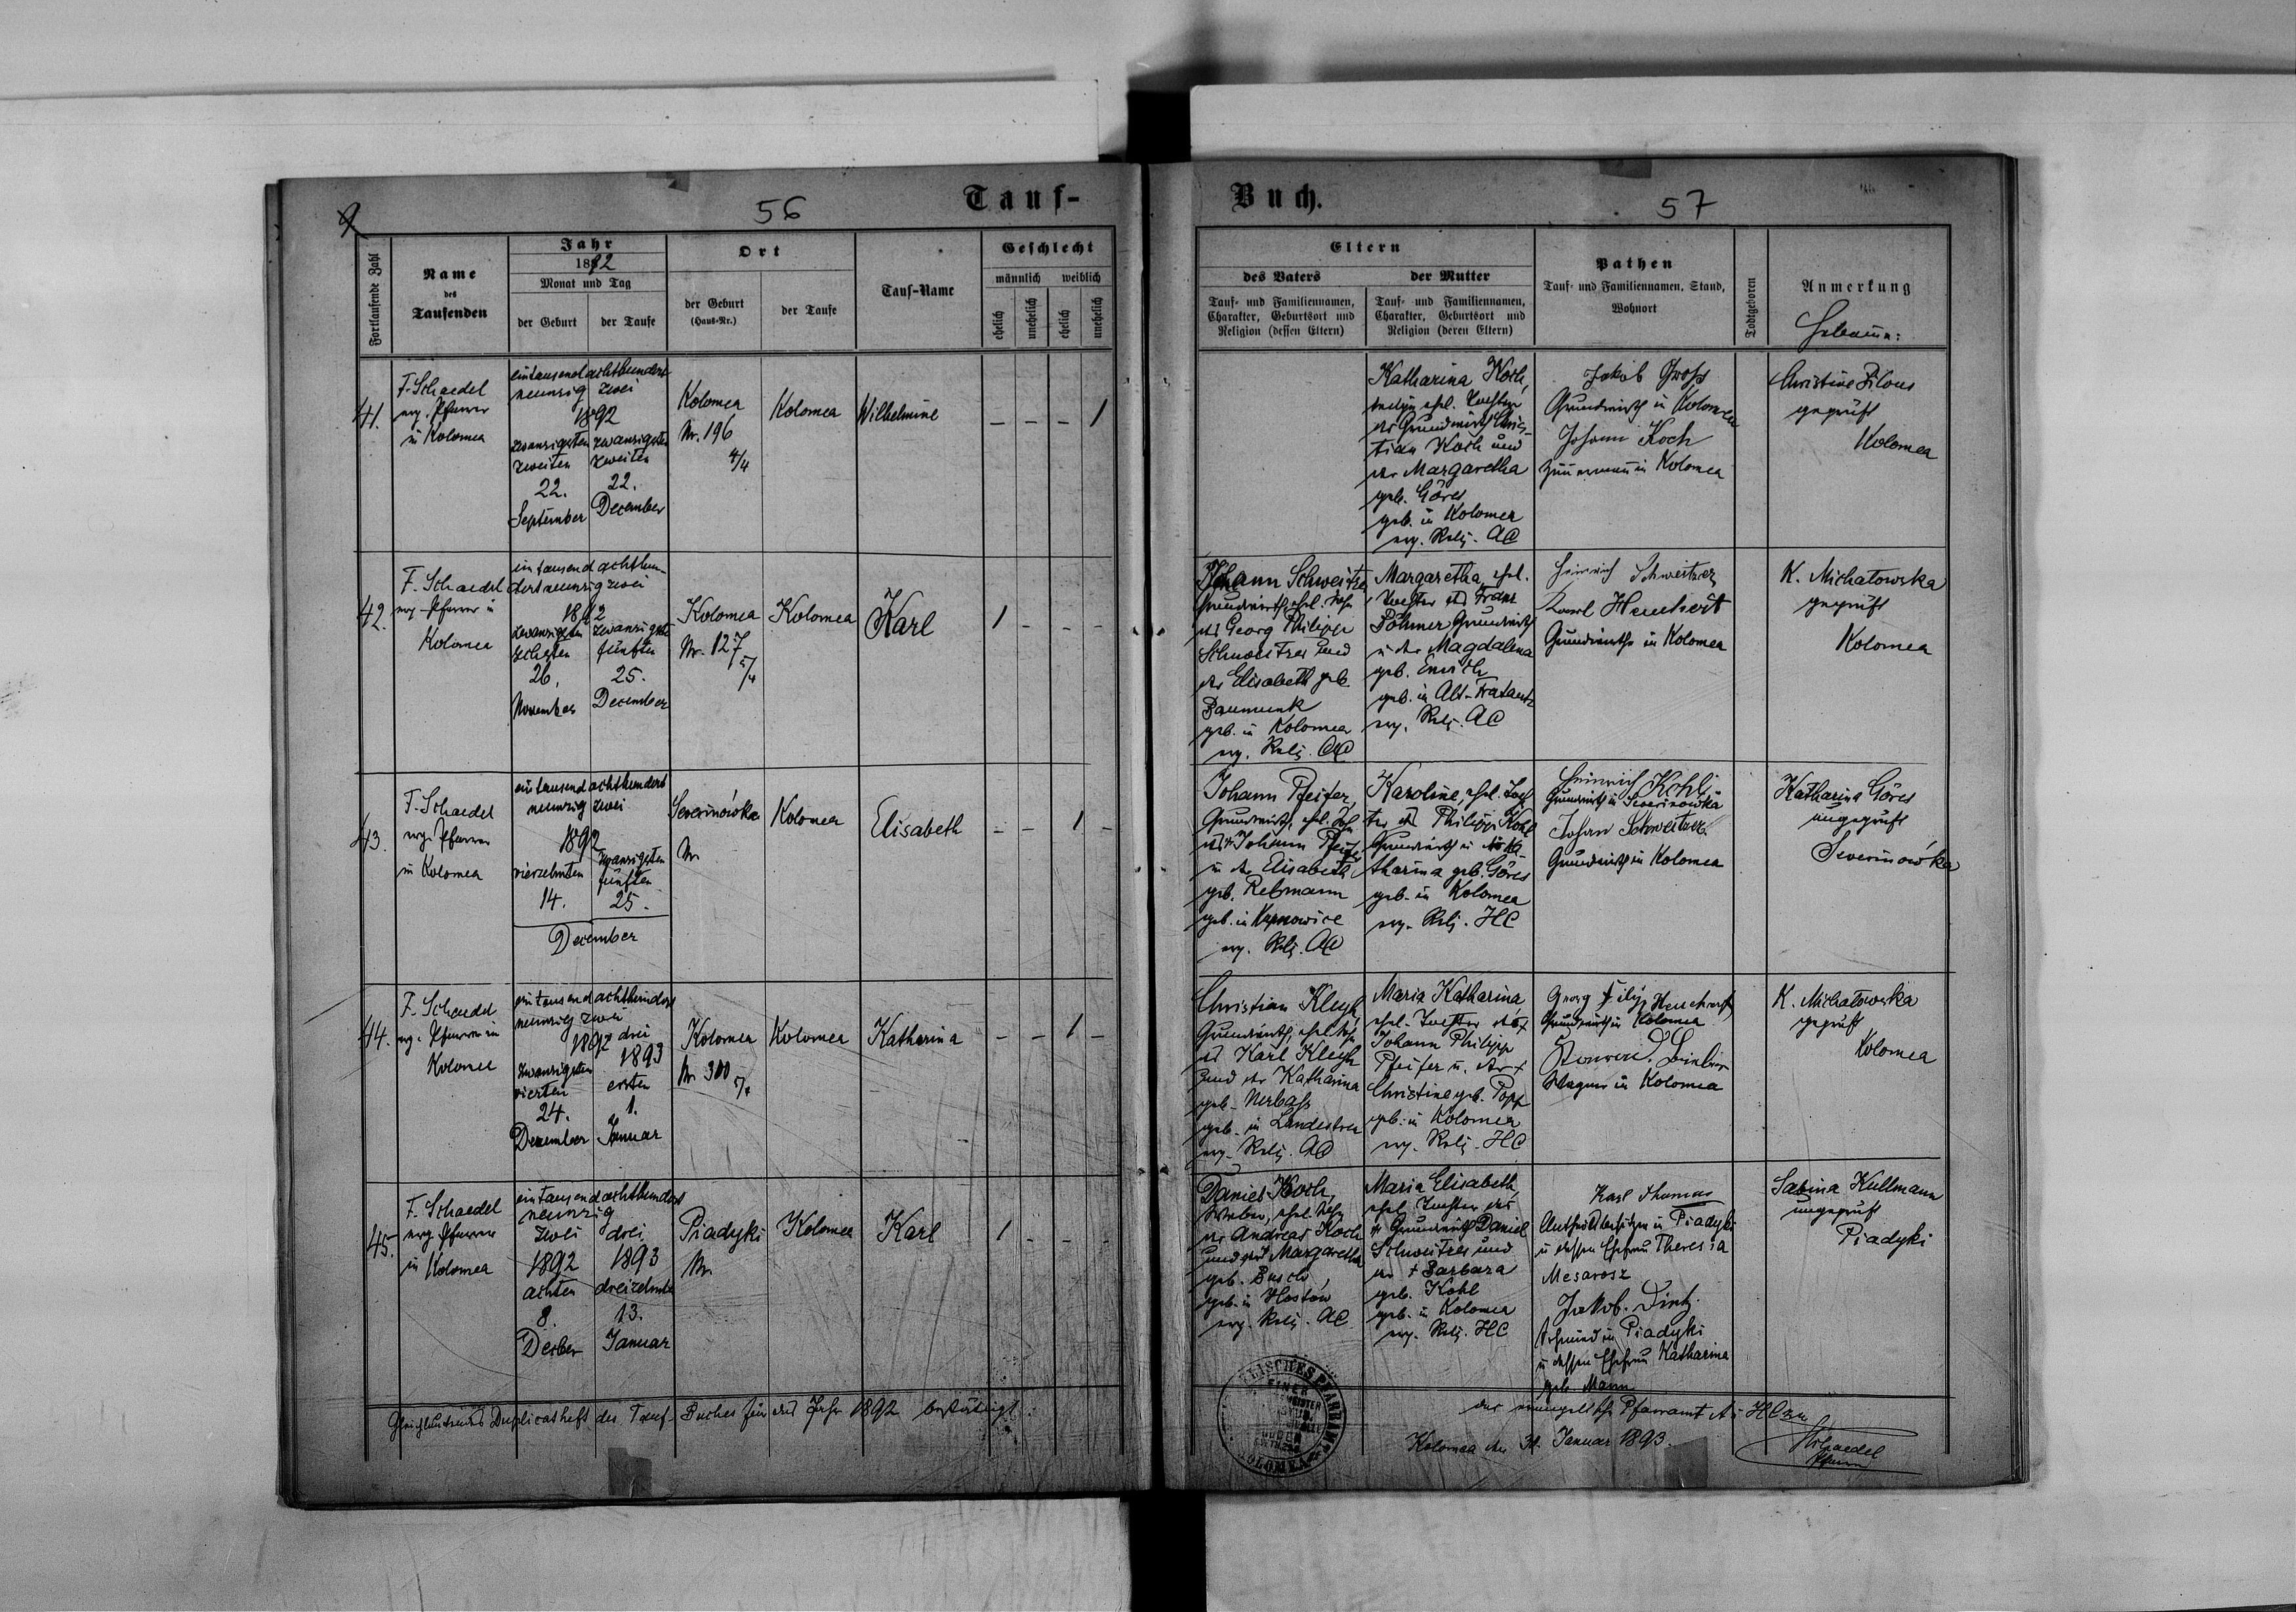 56
Tauf-
Fortlaufende Zahl
Name
des
Taufenden
Jahr
1892
Monat und Tag
der Geburt
der Taufe
Ort
der Geburt
(Haus-Nr.)
der Taufe
Tauf-Name
Geschlecht
männlich
weiblich
ehelich
unehelich
ehelich
unehelich
41.
F. Schaedel
evg. Pfarrer
in Kolomea
eintausendachthundert
neunzig zwei
1892
zwanzigsten zwanzigsten
zweiten zweiten
22. 22.
September December
Kolomea
Nr. 196
4/4
Kolomea
Wilhelmine
– – – 1
42.
F. Schaedel
evg. Pfarrer in
Kolomea
eintausend achthun-
dertneunzig zwei
1892
zwanzigsten zwanzigsten
sechsten fünften
26. 25.
November December
Kolomea
Nr. 127
5/4
Kolomea
Karl
1 – – –
43.
F. Schaedel
evg. Pfarrer
in Kolomea
eintausend achthundert
neunzig zwei
1892
vierzehnten zwanzigsten
fünften
14. 25.
December
Severinówka
Nr.
Kolomea
Elisabeth
– – 1 –
44.
F. Schaedel
evg. Pfarrer in
Kolomea
eintausendachthundert
neunzig zwei
1892 drei
1893
zwanzigsten
vierten ersten
24. 1.
Dezember Januar
Kolomea
Nr. 300
Kolomea
Katharina
– – 1 –
45.
F. Schaedel
evg. Pfarrer
in Kolomea
eintausendachthundert
neunzig
zwei drei
1892 1893
achten dreizehnten
8. 13.
Januar
Piadyki
Nr.
Kolomea
Karl
1 – – –
Gleichlautendes Duplicatheft des Tauf-Buches für das Jahr 1892 bestätigt:
Buch.
57
Eltern
des Vaters
der Mutter
Tauf- und Familiennamen,
Charakter, Geburtsort und
Religion (dessen Eltern)
Tauf- und Familiennamen,
Charakter, Geburtsort und
Religion (deren Eltern)
Pathen
Tauf- und Familiennamen, Stand,
Wohnort
Todtgeboren
Anmerkung
Hebamme:
Katharina Koch,
ledige ehel. Tochter
des Grundwirth Chris-
tian Koch und
der Margaretha
geb. Göres
geb. in Kolomea
evg. Relig. AC
Jakob Gross
Grundwirth in Kolomea
Johann Koch
Zimmermann in Kolomea
Christine
geprüft
Kolomea
Johann Schweitzer
Grundwirth, ehel. Sohn
des Georg Philipp
Schweitzer und
der Elisabeth geb.
geb. in Kolomea
evg. Relig. AC
Margaretha, ehel.
Tochter des Franz
Böhmer Grundwirth
u. der Magdalena
geb.
geb. in Alt-
evg. Relig. AC
Heinrich Schweitzer
Karl
Grundwirthe in Kolomea
K. Michatowska
geprüft
Kolomea
Johann Pfeifer,
Grundwirth, ehel. Sohn
des Johann Pfeifer
u. der Elisabeth
geb. Rebmann
geb. in
evg. Relig. AC
Karoline, ehel. Toch
ter des Philipp Kohl
Grundwirth u. der Ka
tharina geb. Göres
geb. in Kolomea
evg. Relig. HC
Heinrich Kohli
Grundwirth in Severinowka
Johan Schweitzer
Grundwirth in Kolomea
Katharina Göres
ungeprüft
Severinówka
Christian Klegh,
Grundwirth, ehel. Sohn
des Karl Klegh
und der Katharina
geb. Nerbass
geb. in Landestreu
evg. Relig. AC
Maria Katharina
ehel. Tochter des †
Johann Philipp
Pfeifer u. der †
Christine geb. Popp
geb. in Kolomea
evg. Relig. HC
Georg Filip
Grundwirth in Kolomea
Wagner in Kolomea
K. Michatowska
geprüft
Kolomea
Daniel Koch,
Weber, ehel. Sohn
des Andreas Koch
und der Margaretha
geb. Busch,
geb. in Hostow
evg. Relig. AC
Maria Elisabeth,
ehel. Tochter des
† Grundwirth Daniel
Schweitzer und
der † Barbara
geb. Kohl
geb. in Kolomea
evg. Relig. HC
Karl Thomas
in Piadyki
u. dessen Ehefrau Theresia
Mesarosz
Jakob
Schmied in Piadyki
u. dessen Ehefrau Katharina
geb. Mann
Sabina Kullmann
ungeprüft
Piadyki
das evangelische Pfarramt A. u. HC zu
Kolomea den 31. Januar 1893.
Schaedel
Pfarrer
KOLOMEA